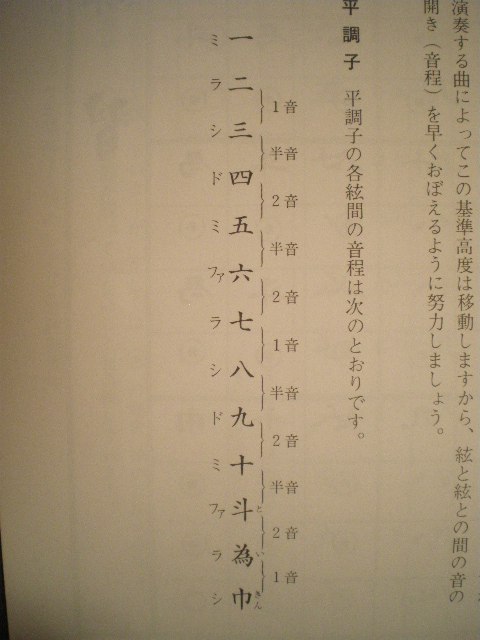 演奏する曲によってこの基準高度は移動しますから、絃と絃との間の音の
開き（音程）を早くおぼえるように努力しましょう。
平調子 平調子の各絃間の音程は次のとおりです。
1音 半音 2音 半音 2音 1音 半音 2音 半音 2音 1音
と い きん
一 二 三 四 五 六 七 八 九 十 斗 為 巾
ミ ラ シ ド ミ ファ ラ シ ド ミ ファ ラ シ